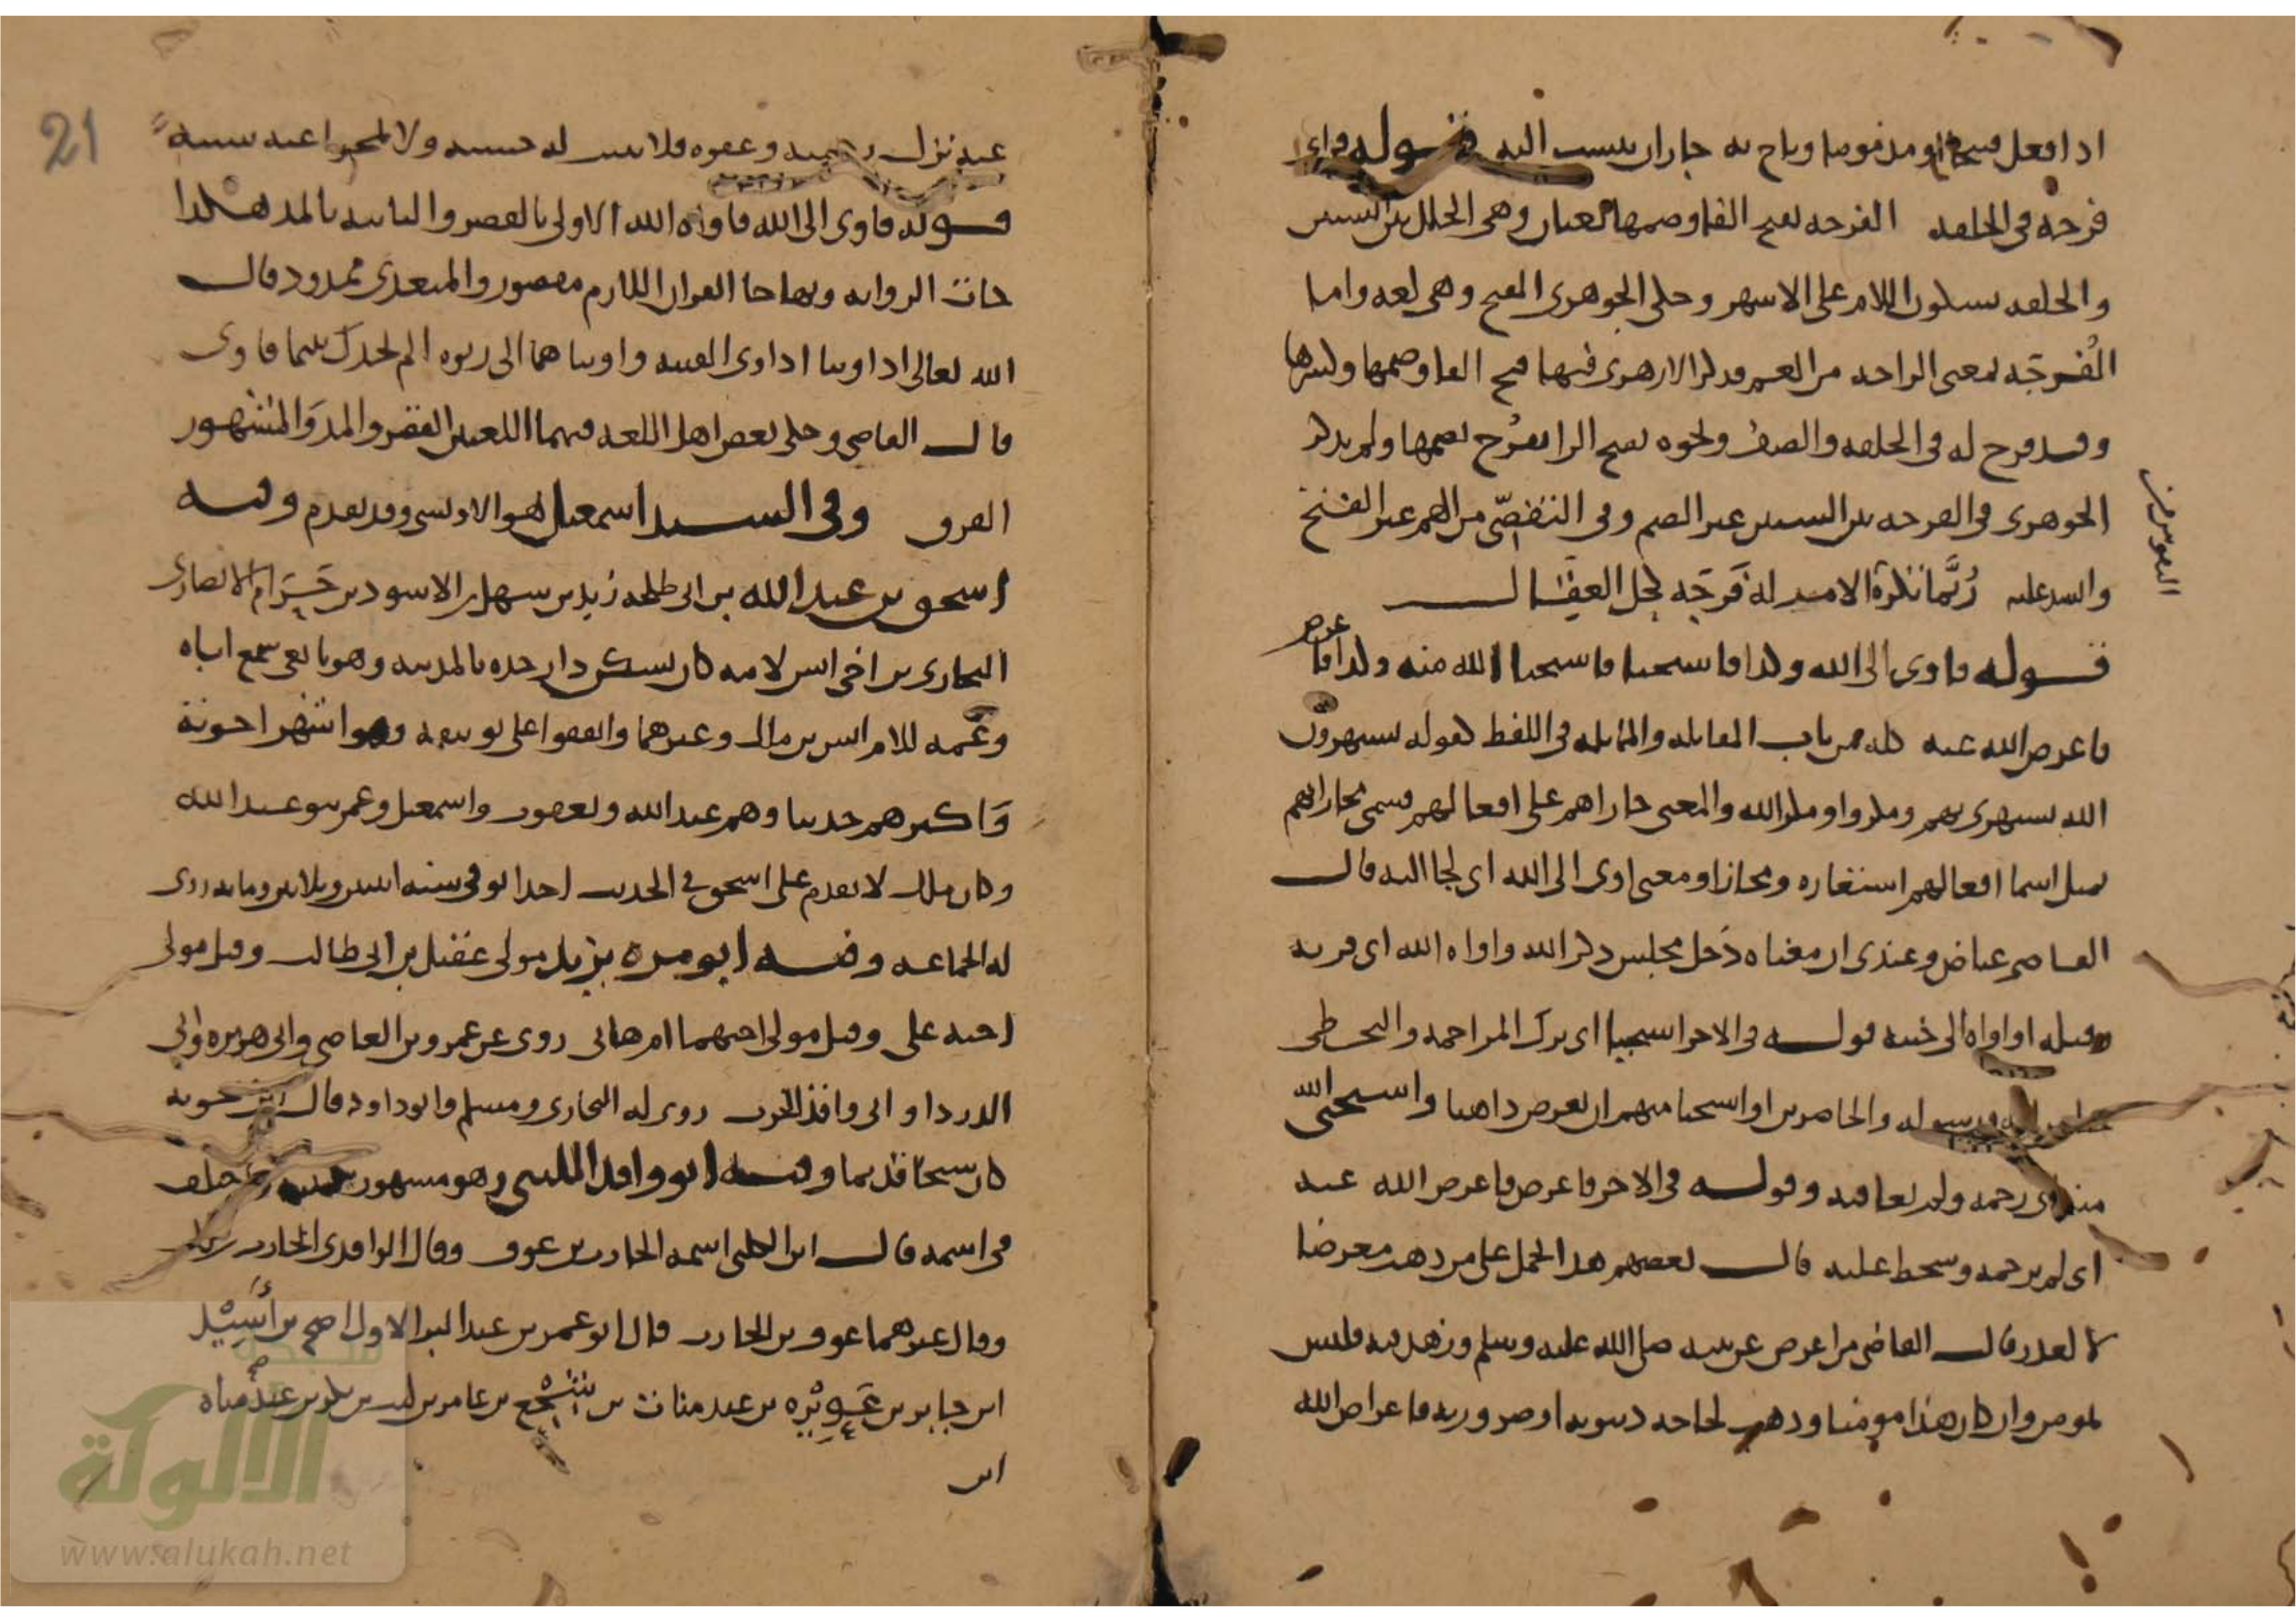 اذا فعل قبيحا او مذموما وباح به جاز ان ينسب اليه قوله فراى
فرجة فى الحلقة الفرجة بفتح الفا وضمها لغتان وهى الخلل بين الشيئين
والحلقة بسكون اللام على الاشهر وحكى الجوهرى الفتح وهى لغة واما
الفُرجَة بمعنى الراحة من الغم فذكر الازهرى فيها فتح الفا وضمها وكسرها
وقد فرج له فى الحلقة والصف ونحوه بفتح الرا يفرُج بضمها ولم يذكر
الجوهرى فى الفرجة بين الشيئين غير الضم وفى التفصّى من الهم غير الفتح
وانشد عليه رُبَّما تكره الامر له فَرجَة كحل العِقَال
قوله فاوى الى الله وكذا فاستحيا فاستحيا الله منه وكذا فاعرض
فاعرض الله عنه كله من باب المقابلة والمماثلة فى اللفظ كقوله يستهزون
الله يستهزى بهم ومكروا ومكر الله والمعنى جازاهم على افعالهم فسمى مجازاتهم
بمثل اسما افعالهم استعارة ومجازا ومعنى اوى الى الله اى لجا اليه قال
القاضى عياض وعندى ان معناه دخل مجلس ذكر الله واواه الله اى قربه
وقبله او اواه الى جنته قوله فى الاخر استحيا اى ترك المزاحمة والتخطى
الله ورسوله والحاضرين او استحيا منهم ان يعرض ذاهبا واستحيى الله
منه اى رحمه ولم يعاقبه وقوله فى الاخر فاعرض فاعرض الله عنه
اى لم يرحمه وسخط عليه قال بعضهم هذا يحمل على من ذهب معرضا
لا لعذر قال القاضى من اعرض عن نبيه صلى الله عليه وسلم وزهد فيه فليس
بمومن وان كان هذا مومنا وذهب لحاجة دنيوية او ضرورية فاعراض الله
عنه ترك رحمته وعفوه فلا يثبت له حسنة ولا يمحوا عنه سيئة
قوله فاوى الى الله فاواه الله الاولى بالقصر والثانية بالمد هكذا
جات الرواية وبها جا القران اللازم مقصور والمتعدى ممدود قال
الله تعالى اذ اوينا اذ اوى الفتية واويناهما الى ربوة الم يجدك يتيما فاوى
قال القاضى وحكى بعض اهل اللغة فيهما اللغتين القصر والمد والمشهور
الفرق وفى السند اسمعيل هو الاويسى وقد تقدم وفيه
اسحق بن عبد الله بن ابى طلحة زيد بن سهل بن الاسود بن حَرَام الانصارى
النجارى بن اخى انس لامه كان يسكن دار جده بالمدينة وهو تابعى سمع اباه
وعمه للام انس بن مالك وغيرهما واتفقوا على توثيقه وهو اشهر اخوته
وَاكثرهم حديثا وهم عبد الله ويعقوب واسمعيل وعمر بنو عبد الله
وكان ملك لا يقدم على اسحق فى الحديث احدا توفى سنة اثنين وثلاثين ومائة روى
له الجماعة وفيه ابو مرة يزيد مولى عقيل بن ابى طالب وقيل مولى
اخيه على وقيل مولى اختهما ام هانى روى عن عمرو بن العاصى وابى هريرة وابى
الدردا وابى واقد روى له البخارى ومسلم وابو داود قال
كان شيخا قديما وفيه ابو واقد الليثى وهو مشهور بكنيته
فى اسمه قال ابن الكلبى اسمه الحارث بن عوف وقال الواقدى الحارث بن ملك
وقال غيرهما عوف بن الحارث قال ابو عمر بن عبد البر الاول اصح بن أُسَيْد
ابن جابر بن عويْرة بن عبد مناة بن شجع بن عامر بن ليث بن بكر بن عبد مناة
ابن
21
شبكة
الألوكة
www.alukah.net